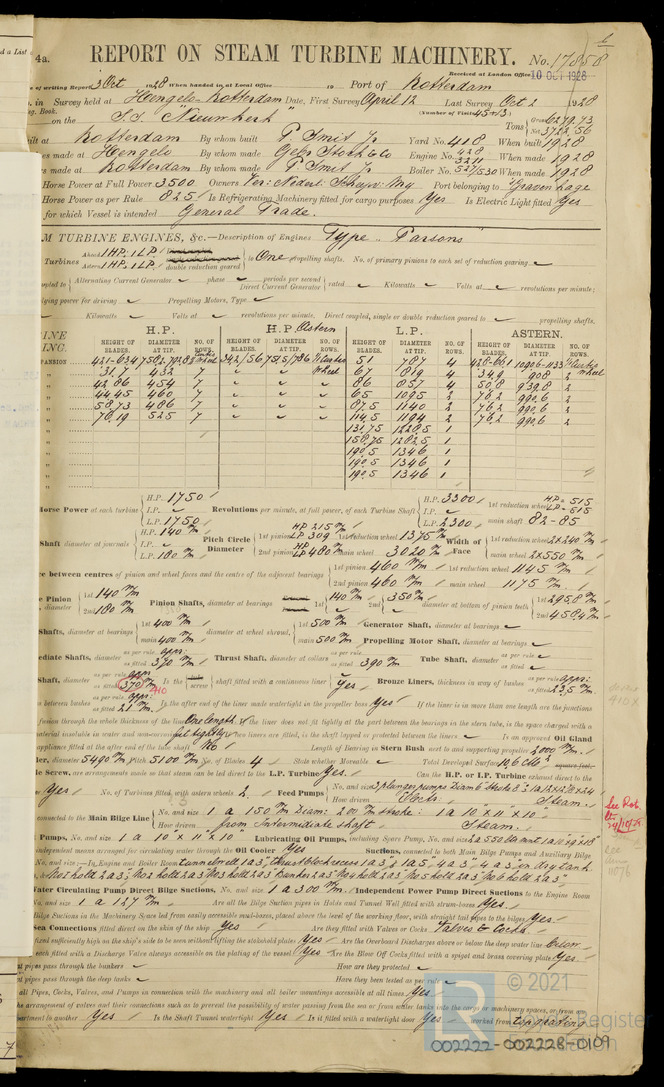 d a List
4a.
REPORT ON STEAM TURBINE MACHINERY. No. 17858
Received at London Office 10 OCT 1928
of writing Report 3 Oct 1928 When handed in at Local Office 19 Port of Rotterdam
in Survey held at Hengelo-Rotterdam Date, First Survey April 12 Last Survey Oct 2 1928
Reg. Book. (Number of Visits 45+13)
on the S.S. "Nieuwkerk" Tons Gross 6279,73
Net 3722,56
built at Rotterdam By whom built P. Smit Jr Yard No. 418 When built 1928
es made at Hengelo By whom made Gebr Stork & Co Engine No. 428 3211 When made 1928
s made at Rotterdam By whom made P. Smit Jr Boiler No. 527/530 When made 1928
Horse Power at Full Power 3500 Owners Ver. Nederl. Scheepv. My Port belonging to 's Gravenhage
Horse Power as per Rule 825 Is Refrigerating Machinery fitted for cargo purposes Yes Is Electric Light fitted Yes
for which Vessel is intended General Trade.
M TURBINE ENGINES, &c.—Description of Engines Type "Parsons"
Turbines Ahead 1 HP. 1 LP.
Astern 1 HP. 1 LP. double reduction geared to One propelling shafts. No. of primary pinions to each set of reduction gearing
Alternating Current Generator phase periods per second
Direct Current Generator rated Kilowatts Volts at revolutions per minute;
lying power for driving Propelling Motors, Type
Kilowatts Volts at revolutions per minute. Direct coupled, single or double reduction geared to propelling shafts.
H.P. H.P. Astern L.P. ASTERN.
HEIGHT OF BLADES. DIAMETER AT TIP. NO. OF ROWS. HEIGHT OF BLADES. DIAMETER AT TIP. NO. OF ROWS. HEIGHT OF BLADES. DIAMETER AT TIP. NO. OF ROWS. HEIGHT OF BLADES. DIAMETER AT TIP. NO. OF ROWS.
57 787 4
31,7 432 7 67 819 4 34,9 908 2
42,86 454 7 86 857 4 50,8 939,8 2
44,45 460 7 65 1095 2 76,2 990,6 2
58,73 486 7 87,5 1140 2 76,2 990,6 2
76,19 525 7 114,5 1194 2 76,2 990,6 2
131,75 1228,5 1
158,75 1282,5 1
190,5 1346 1
190,5 1346 1
190,5 1346 1
Horse Power at each turbine H.P. 1750 I.P. L.P. 1750 Revolutions per minute, at full power, of each Turbine Shaft H.P. 3300 I.P. L.P. 2300 1st reduction wheel HP = 515 LP = 515 main shaft 82-85
Shaft diameter at journals H.P. 140 m/m I.P. L.P. 180 m/m Pitch Circle Diameter 1st pinion HP 215 m/m LP 309 1st reduction wheel 1375 m/m 2nd pinion 480 m/m main wheel 3020 m/m Width of Face 1st reduction wheel 2x240 m/m main wheel 2x550 m/m
ce between centres of pinion and wheel faces and the centre of the adjacent bearings 1st pinion 460 m/m 1st reduction wheel 1145 m/m
2nd pinion 460 m/m main wheel 1175 m/m
e Pinion diameter 1st 140 m/m 2nd 180 m/m Pinion Shafts, diameter at bearings 1st 140 m/m 2nd 350 m/m diameter at bottom of pinion teeth 1st 295,8 m/m 2nd 458,4 m/m
Shafts, diameter at bearings 1st 400 m/m main 400 m/m diameter at wheel shroud, 1st 500 m/m main 500 m/m Generator Shaft, diameter at bearings
Propelling Motor Shaft, diameter at bearings
ediate Shafts, diameter as per rule appr: as fitted 370 m/m Thrust Shaft, diameter at collars as per rule as fitted 390 m/m Tube Shaft, diameter as per rule as fitted
Shaft, diameter as per rule appr as fitted 370 m/m 410 Is the screw shaft fitted with a continuous liner Yes Bronze Liners, thickness in way of bushes as per rule appr: as fitted 23,5 m/m
s between bushes as per rule appr: as fitted 21 m/m Is the after end of the liner made watertight in the propeller boss Yes If the liner is in more than one length are the junctions
fusion through the whole thickness of the liner One length If the liner does not fit tightly at the part between the bearings in the stern tube, is the space charged with a
terial insoluble in water and non-corrosive fits tightly If two liners are fitted, is the shaft lapped or protected between the liners Is an approved Oil Gland
appliance fitted at the after end of the tube shaft No Length of Bearing in Stern Bush next to and supporting propeller 2000 m/m
ler, diameter 5490 m/m Pitch 5100 m/m No. of Blades 4 State whether Moveable Total Developed Surface square feet.
le Screw, are arrangements made so that steam can be led direct to the L.P. Turbine Yes. Can the H.P. or I.P. Turbine exhaust direct to the
Yes No. of Turbines fitted with astern wheels 2. Feed Pumps No. and size
How driven Electr. Steam.
connected to the Main Bilge Line No. and size 1 a 150 m/m Diam: 200 m/m stroke: 1 a 10"x11"x10"
How driven from intermediate shaft Steam.
Pumps, No. and size 1 a 10"x11"x10" Lubricating Oil Pumps, including Spare Pump, No. and size
independent means arranged for circulating water through the Oil Cooler Yes Suctions, connected to both Main Bilge Pumps and Auxiliary Bilge
No. and size:—In Engine and Boiler Room
No 1 hold 2 a 3", No 2 hold 2 a 3", No 3 hold 2 a 3", bunker 2 a 3", No 4 hold 2 a 3", No 5 hold 2 a 3", No 6 hold 2 a 3"
Water Circulating Pump Direct Bilge Suctions, No. and size 1 a 300 m/m. Independent Power Pump Direct Suctions to the Engine Room
No. and size 1 a 127 m/m Are all the Bilge Suction pipes in Holds and Tunnel Well fitted with strum-boxes Yes.
Bilge Suctions in the Machinery Space led from easily accessible mud-boxes, placed above the level of the working floor, with straight tail pipes to the bilges Yes
Sea Connections fitted direct on the skin of the ship Yes Are they fitted with Valves or Cocks Valves & Cocks.
xed sufficiently high on the ship's side to be seen without lifting the stokehold plates Yes Are the Overboard Discharges above or below the deep water line below
each fitted with a Discharge Valve always accessible on the plating of the vessel Yes Are the Blow Off Cocks fitted with a spigot and brass covering plate Yes.
at pipes pass through the bunkers How are they protected
at pipes pass through the deep tanks Have they been tested as per rule
all Pipes, Cocks, Valves, and Pumps in connection with the machinery and all boiler mountings accessible at all times Yes
the arrangement of valves and their connections such as to prevent the possibility of water passing from the sea or from water tanks into the cargo or machinery spaces, or from one
partment to another Yes Is the Shaft Tunnel watertight Yes Is it fitted with a watertight door Yes worked from top grating
© 2021
Lloyd's Register
Foundation
002222-002228-0109